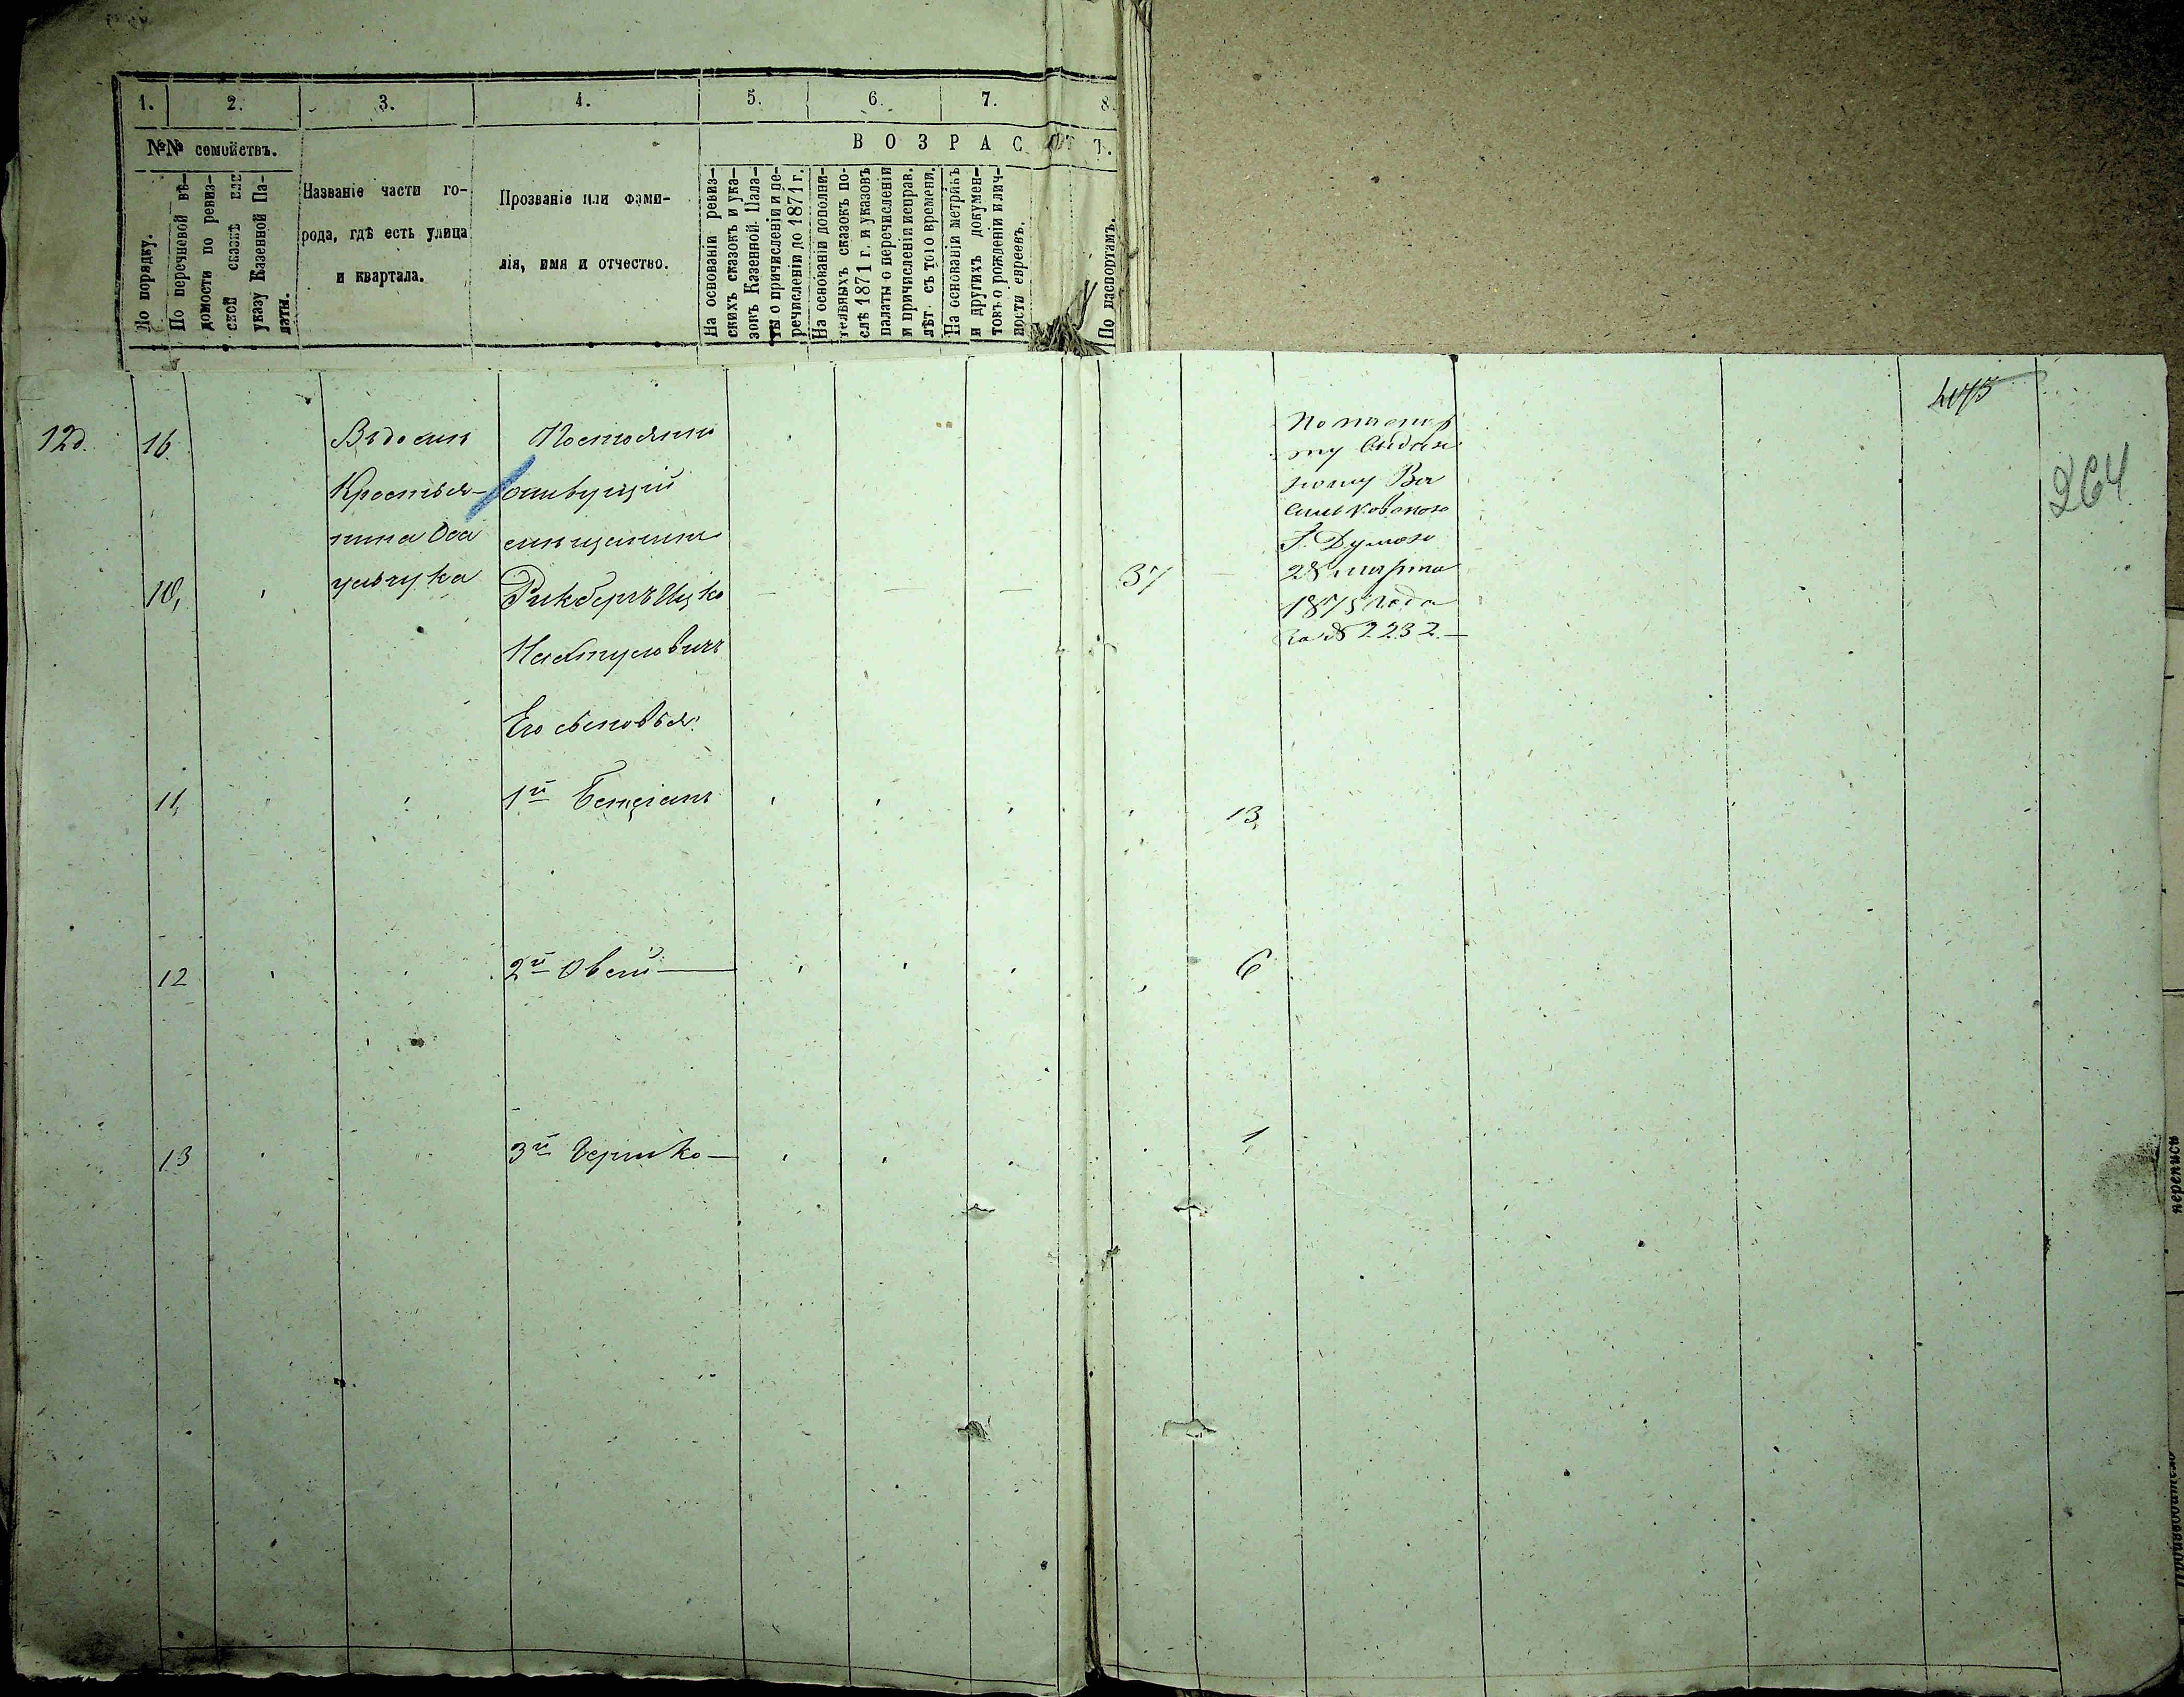 1. 2. 3. 4. 5. 6. 7. 8.
№№ семействъ.
В О З Р А С Т Ъ.
По порядку.
По перечневой вѣ-
домости по ревиз-
ской сказкѣ или
указу Казенной Па-
латы.
Названіе части го-
рода, гдѣ есть улица
и квартала.
Прозваніе или фами-
лія, имя и отчество.
На основаніи ревиз-
скихъ сказокъ и ука-
зовъ Казенной Пала-
ты о причисленіи и пе-
речисленіи до 1871 г.
На основаніи дополни-
тельныхъ сказокъ по-
слѣ 1871 г. и указовъ
палаты о перечисленіи
и причисленіи исправ.
лѣт съ того времени.
На основаніи метрикъ
и другихъ докумен-
товъ о рожденіи и лич-
ности евреевъ.
По паспортамъ.
264
12д. 16
Въ домѣ
Крестья-
нина Оса
чука
Постоянно
живущій
мѣщанинъ
10, Рикбергъ Ицко
Нафтуловичъ
37
По паспор
ту выдан
ному Ва
сильковскою
Г. Думою
28 марта
1875 года
за № 2232.—
Его сыновья:
11, 1й Бенціонъ 13,
12 2й Овсій 6
13 3й Гершко 1
перепись